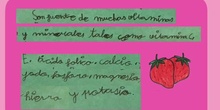 Son fuente de muchas vitaminas
y minerales tales como vitamina C
E, ácido fólico, calcio,
yodo, fósforo, magnesio
hierro y potasio.